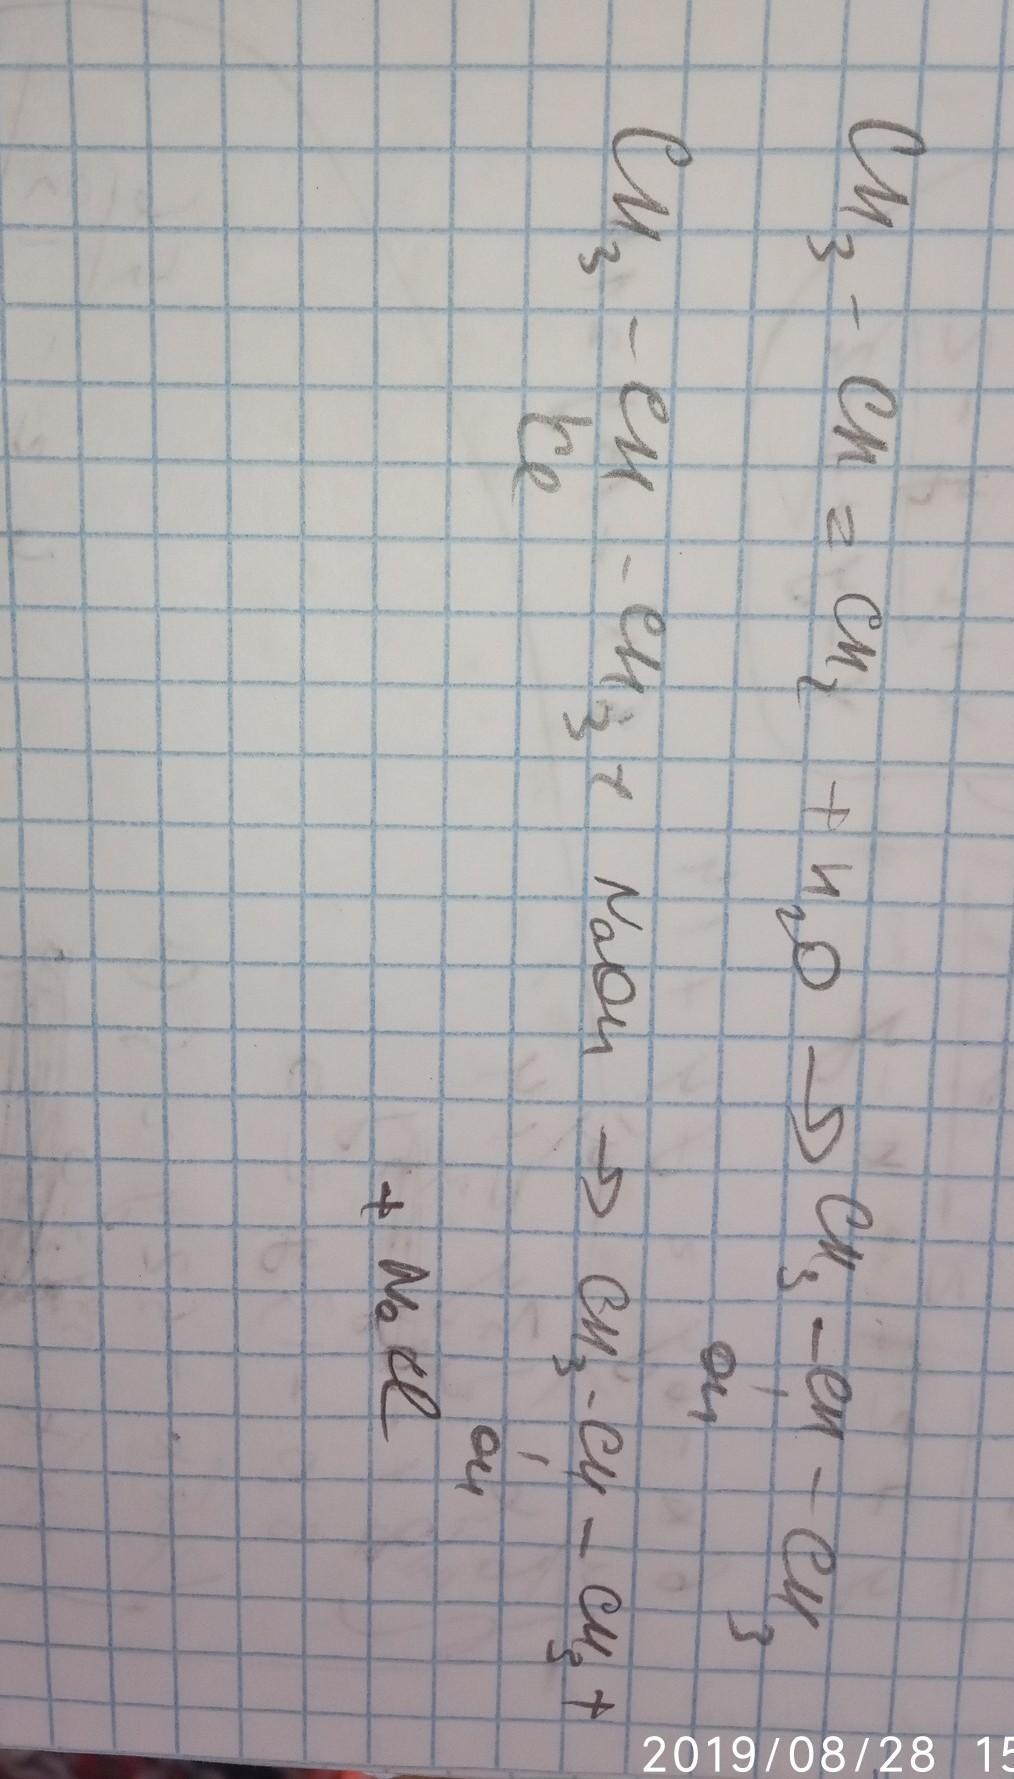 CH₃ - CH = CH₂ + H₂O → CH₃ - CH - CH₃
OH
CH₃ - CH - CH₃ + NaOH → CH₃ - CH - CH₃ +
Cl
OH
+ NaCl
2019/08/28 15